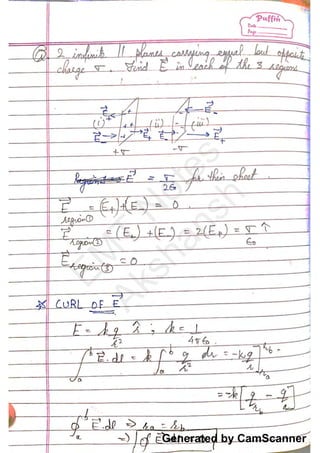 Puffin
Date
Page
Q. 2 infinite || planes carrying equal but opposite
charge σ. Find E⃗ in each of the 3 regions
E⃗₋ E⃗₋
(i) + (ii) - (iii)
E⃗₋ E⃗₊ E⃗₋ E⃗₊
+σ -σ
E⃗ = σ/2ε₀ for thin sheet.
E⃗ region① = (E₊)+(E₋) = 0
E⃗ region② = (E₊) + (E₋) = 2(E₊) = σ/ε₀ î
E⃗ region③ = 0
* CURL OF E⃗
E = kq/r² r̂ ; k = 1/4πε₀
∫ₐᵇ E⃗.dl = k ∫ₐᵇ q/r² dr = -kq/r ]
= -k[ q/r_b - q/r_a ]
∮ₐᵇ E⃗.dl ⇒ r_a = r_b
⇒ ∮ E
Generated by CamScanner
EMF Notes
Akshansh